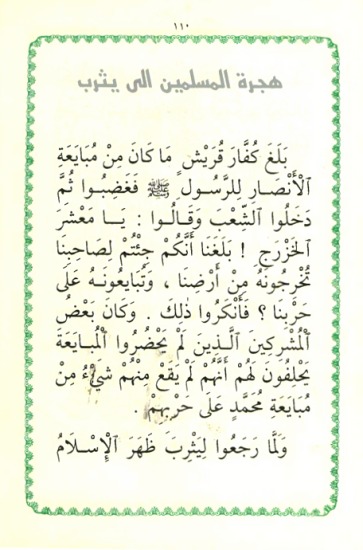 ١١٠
هجرة المسلمين الى يثرب
بَلَغَ كُفَّارَ قُرَيْشٍ مَا كَانَ مِنْ مُبَايَعَةِ
ٱلْأَنْصَارِ لِلرَّسُولِ ﷺ فَغَضِبُوا ثُمَّ
دَخَلُوا ٱلشِّعْبَ وَقَالُوا : يَا مَعْشَرَ
ٱلْخَزْرَجِ ! بَلَغَنا أَنَّكُمْ جِئْتُمْ لِصَاحِبِنا
تُخْرِجُونَهُ مِنْ أَرْضِنَا ، وَتُبَايِعُونَهُ عَلَى
حَرْبِنا ؟ فَأَنْكَرُوا ذٰلِكَ . وَكَانَ بَعْضُ
ٱلْمُشْرِكِينَ ٱلَّذِينَ لَمْ يَحْضُرُوا ٱلْمُبَايَعَةَ
يَحْلِفُونَ لَهُمْ أَنَّهُمْ لَمْ يَقَعْ مِنْهُمْ شَيْءٌ مِنْ
مُبَايَعَةِ مُحَمَّدٍ عَلَى حَرْبِهِمْ .
وَلَمَّا رَجَعُوا لِيَثْرِبَ ظَهَرَ ٱلْإِسْلَامُ